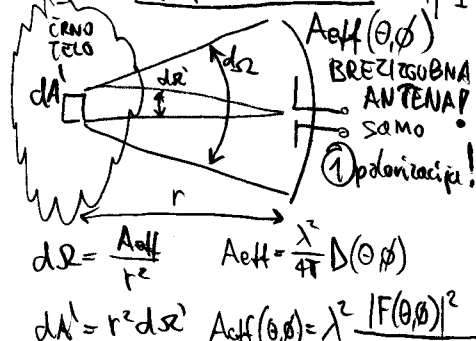 ČRNO
TELO
dA'
dΩ'
dΩ
r
Aeff(θ,ϕ)
BREZIZGUBNA
ANTENA!
SAMO
① polarizacija!
dΩ = Aeff / r²
Aeff = λ² / 4π D(θ,ϕ)
dA' = r² dΩ'
Aeff(θ,ϕ) = λ² |F(θ,ϕ)|²